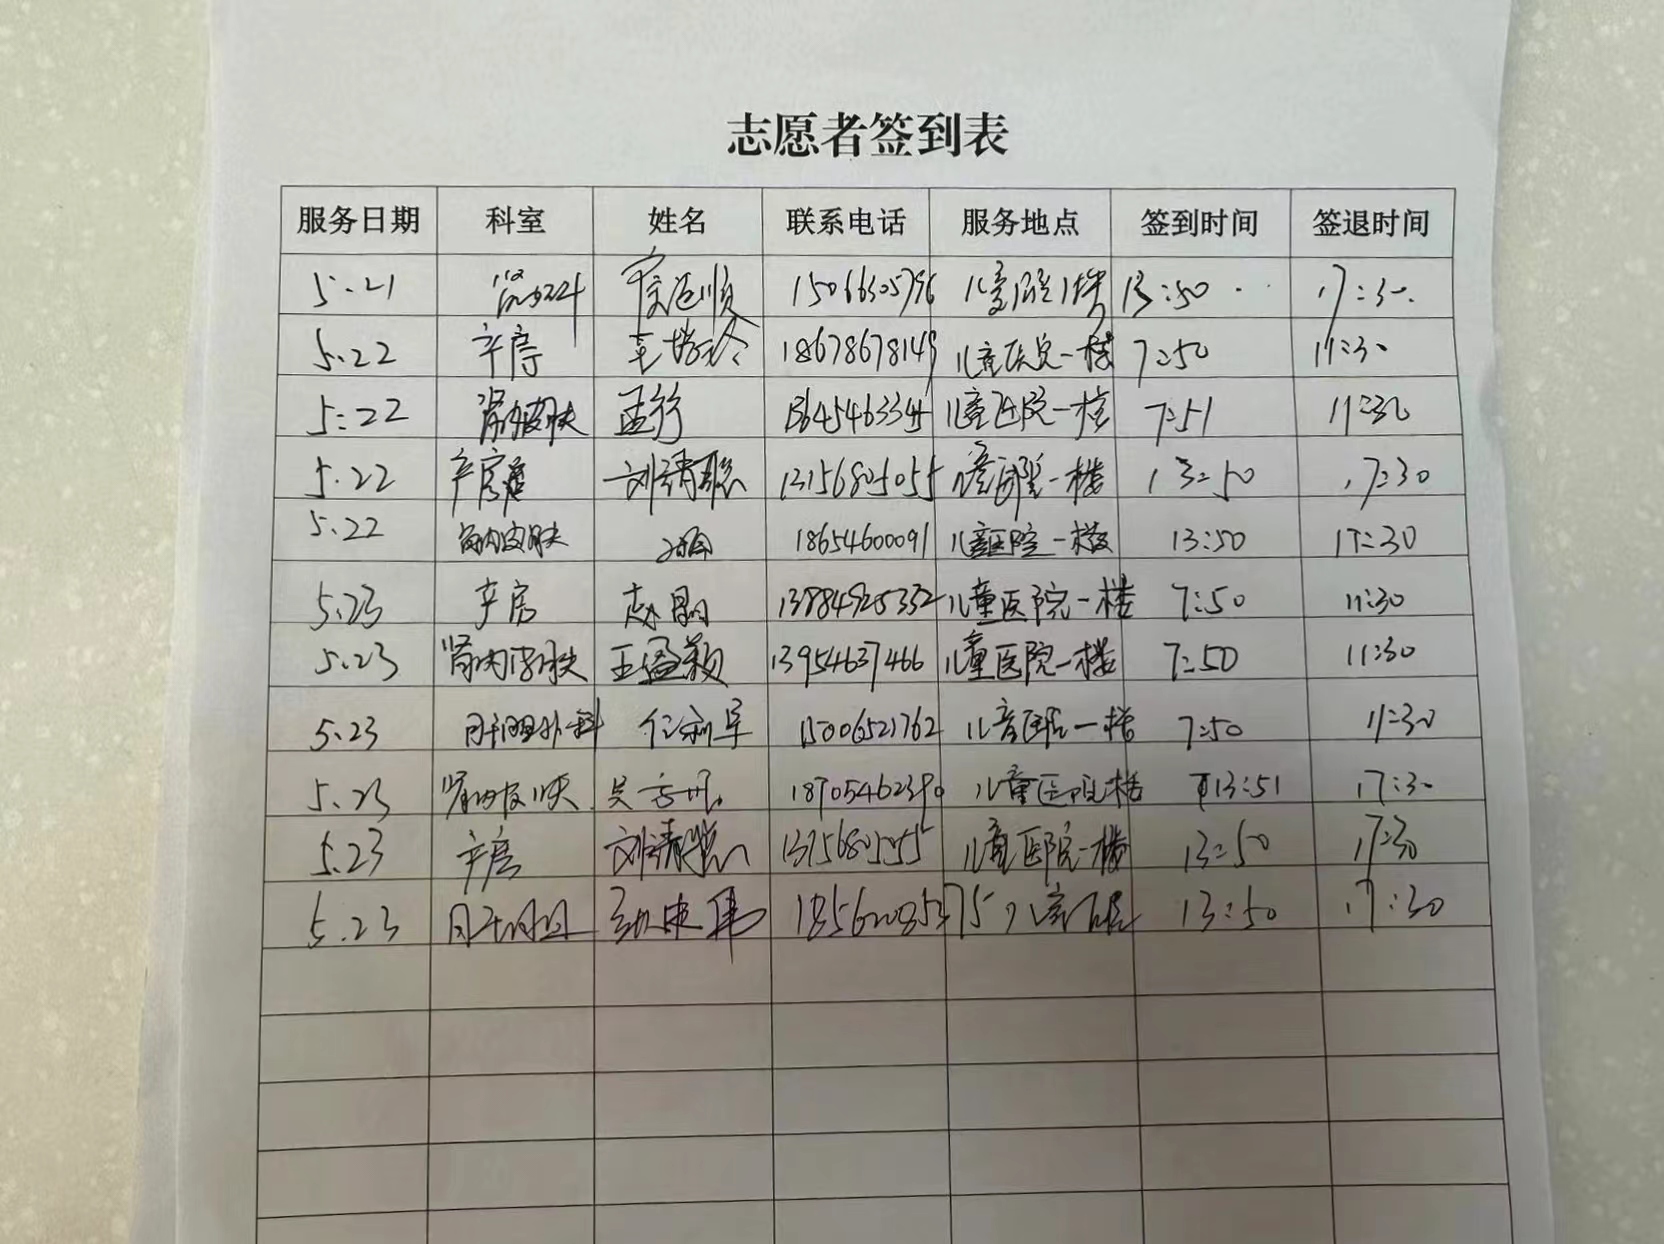 志愿者签到表
服务日期 科室 姓名 联系电话 服务地点 签到时间 签退时间
5.21 儿童医院1楼 13:50 17:30
5.22 产房 18678678149 儿童医院一楼 7:50 11:30
5:22 肾内皮肤 孟行 儿童医院一楼 7:51 11:30
5.22 产房 刘清聪 13156805055 儿童医院一楼 13:50 17:30
5.22 肾内皮肤 18654600091 儿童医院一楼 13:50 17:30
5.23 产房 13884925332 儿童医院一楼 7:50 11:30
5.23 肾内皮肤 王盈颖 13954637466 儿童医院一楼 7:50 11:30
5.23 肝胆外科 15006521762 儿童医院一楼 7:50 11:30
5.23 肾内皮肤 儿童医院一楼 13:51 17:30
5.23 产房 刘清聪 儿童医院一楼 13:50 17:30
5.23 肝胆 儿童医院 13:50 17:30